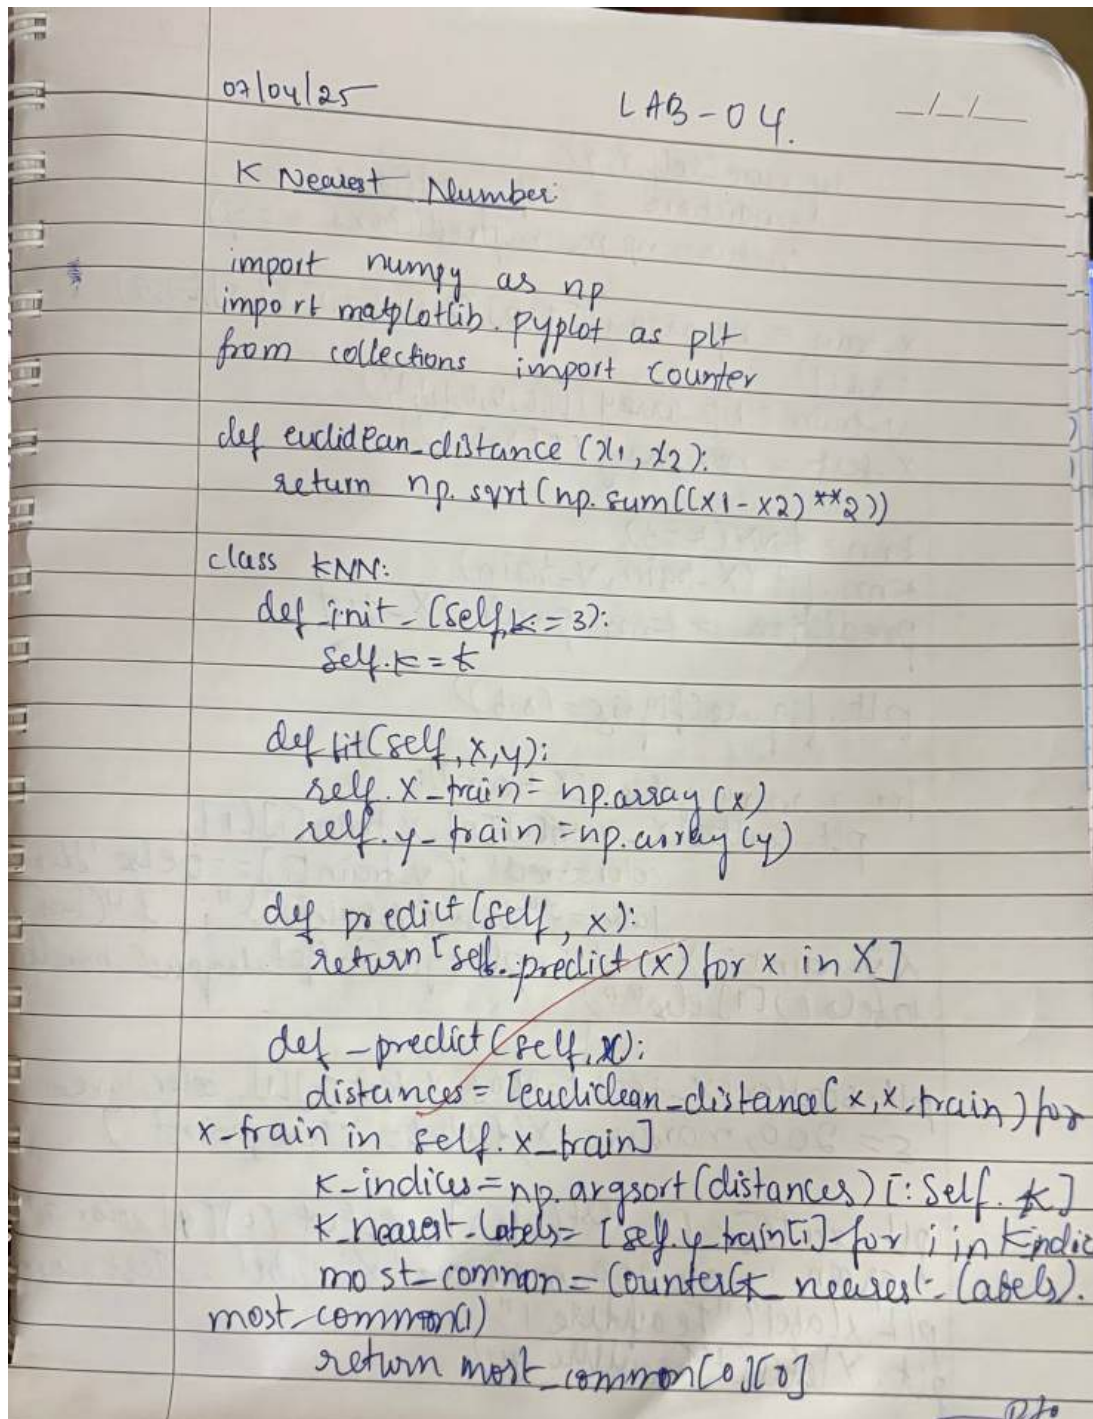 07/04/25
LAB-04.
_/_/_
K Nearest Number:
import numpy as np
import matplotlib.pyplot as plt
from collections import Counter
def euclidean_distance (x1, x2):
return np.sqrt(np.sum((x1-x2)**2))
class KNN:
def _init_(self,k=3):
self.k=k
def fit(self,x,y):
self.X_train= np.array(x)
self.y_train=np.array(y)
def predict(self, x):
return [self._predict(x) for x in X]
def _predict(self,x):
distances= [euclidean_distance(x,x_train) for
x-train in self.x_train]
K-indices=np.argsort(distances)[:Self.k]
K_nearest-labels= [self.y_train[i] for i in K indic
most_common= Counter(k_nearest-labels).
most_common(1)
return most_common[0][0]